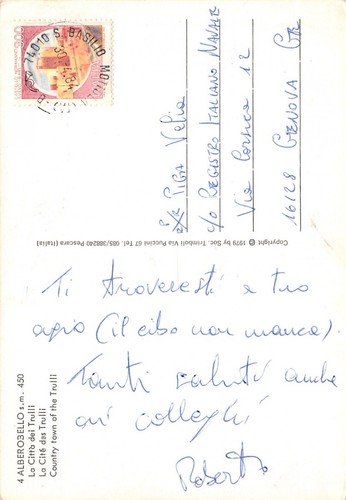 74010 S. BASILIO MO
30.4.84
300
Sig.ra PIGA Velia
c/o REGISTRO ITALIANO NAVALE
Via Corsica 12
16128 GENOVA GE
Copyright © 1979 by Soc. Trimboli Via Puccini 67 Tel. 085/388240 Pescara (Italia)
Ti troveresti a tuo
agio (il cibo non manca).
Tanti saluti anche
ai colleghi
Roberto
4 ALBEROBELLO s.m. 450
La Città dei Trulli
La Cité des Trulli
Country town of the Trulli